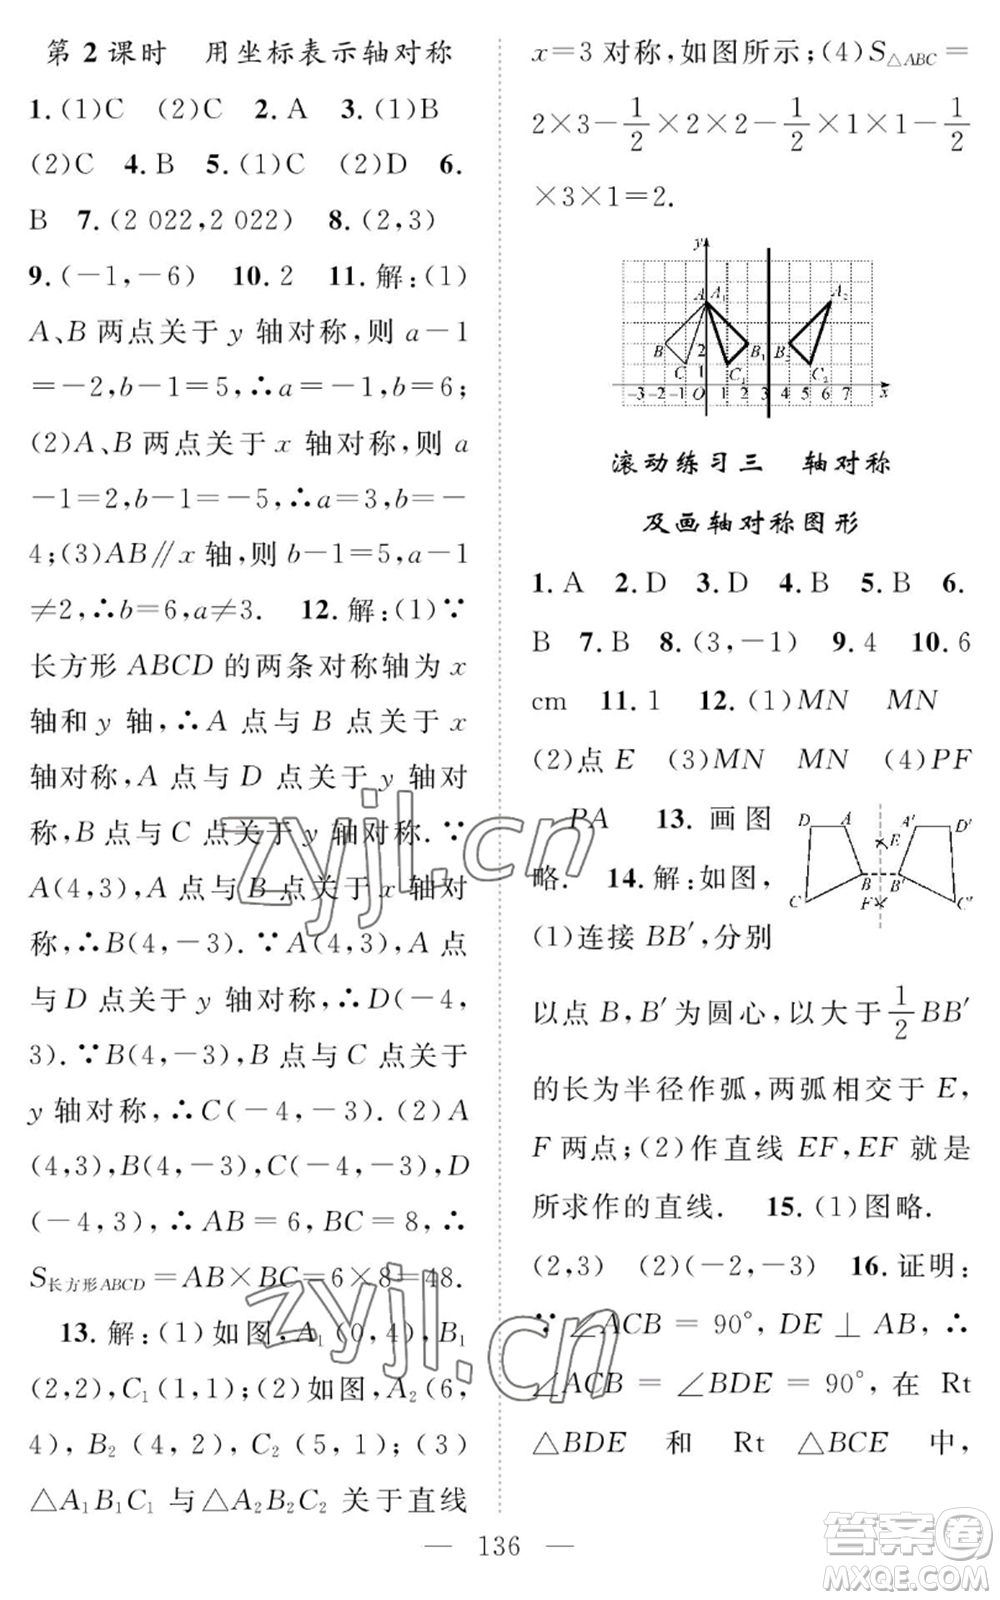 第 2 课时　用坐标表示轴对称
1.(1)C　(2)C　2.A　3.(1)B
(2)C　4.B　5.(1)C　(2)D　6.
B　7.(2 022,2 022)　8.(2,3)
9.(-1,-6)　10.2　11.解:(1)
A、B 两点关于 y 轴对称,则 a-1
=-2,b-1=5,∴a=-1,b=6;
(2)A、B 两点关于 x 轴对称,则 a
-1=2,b-1=-5,∴a=3,b=-
4;(3)AB∥x 轴,则 b-1=5,a-1
≠2,∴b=6,a≠3.　12.解:(1)∵
长方形 ABCD 的两条对称轴为 x
轴和 y 轴,∴A 点与 B 点关于 x
轴对称,A 点与 D 点关于 y 轴对
称,B 点与 C 点关于 y 轴对称.∵
A(4,3),A 点与 B 点关于 x 轴对
称,∴B(4,-3).∵A(4,3),A 点
与 D 点关于 y 轴对称,∴D(-4,
3).∵B(4,-3),B 点与 C 点关于
y 轴对称,∴C(-4,-3).(2)A
(4,3),B(4,-3),C(-4,-3),D
(-4,3),∴AB=6,BC=8,∴
S长方形ABCD=AB×BC=6×8=48.
13.解:(1)如图,A₁(0,4),B₁
(2,2),C₁(1,1);(2)如图,A₂(6,
4),B₂(4,2),C₂(5,1);(3)
△A₁B₁C₁ 与△A₂B₂C₂ 关于直线
x=3 对称,如图所示;(4)S△ABC=
2×3-1/2×2×2-1/2×1×1-1/2
×3×1=2.
y
A A₁ A₂
B 2 B₁ B₂
C 1 C₁ C₂
-3 -2 -1 O 1 2 3 4 5 6 7 x
滚动练习三　轴对称
及画轴对称图形
1.A　2.D　3.D　4.B　5.B　6.
B　7.B　8.(3,-1)　9.4　10.6
cm　11.1　12.(1)MN　MN
(2)点 E　(3)MN　MN　(4)PF
PA　13.画图
略.　14.解:如图,
(1)连接 BB′,分别
D A A′ D′
E
B B′
C F C′
以点 B,B′为圆心,以大于1/2BB′
的长为半径作弧,两弧相交于 E,
F 两点;(2)作直线 EF,EF 就是
所求作的直线.　15.(1)图略.
(2,3)　(2)(-2,-3)　16.证明:
∵∠ACB=90°,DE⊥AB,∴
∠ACB=∠BDE=90°,在 Rt
△BDE 和 Rt△BCE 中,
— 136 —
zyjl.cn
zyjl.cn
答案卷
MXQE.COM